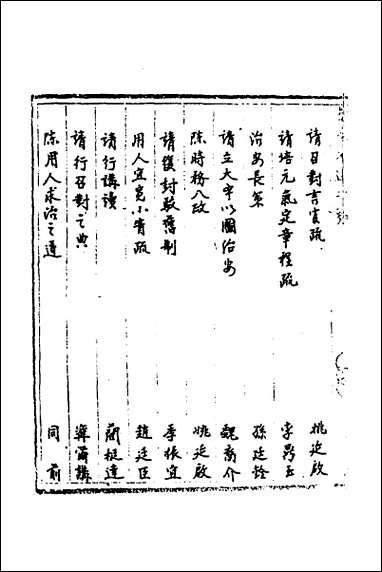 請召對言官疏 姚廷啟
請培元氣定章程疏 李昌玉
治安長策 孫廷銓
請立大宗以圖治安 魏裔介
陳時務八政 姚廷啟
請復封駁舊制 季振宜
用人宜寬小眚疏 趙廷臣
請行講讀 藺挺達
請行召對之典 寧爾講
陳用人求治之道 同前